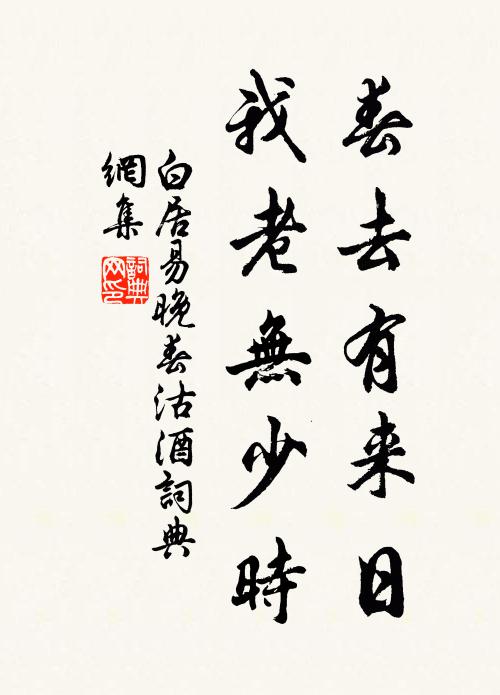 春去有来日
我老無少時
白居易晚春沽酒詞典
網集
詞典
网印